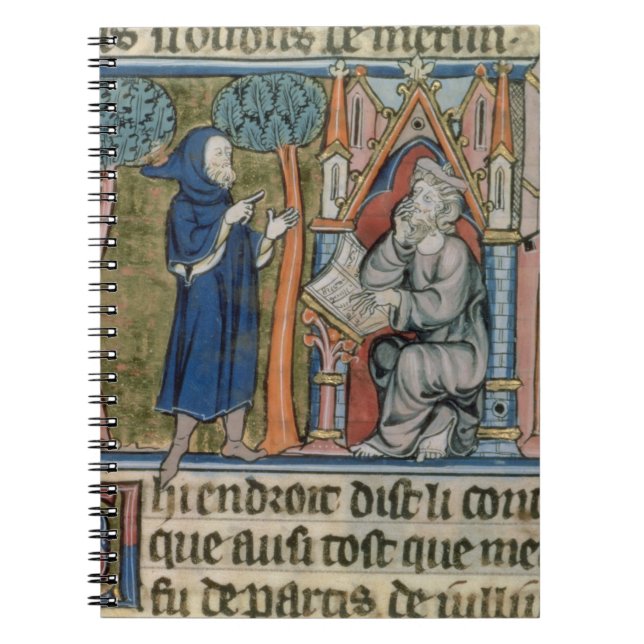 le merlin.
Chi endroit dist li cont
que ausi tost que me
fu departis de